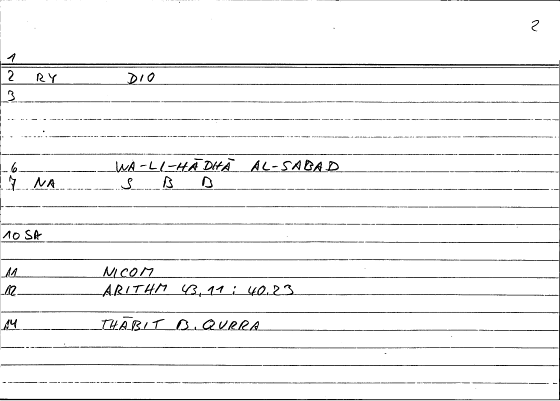 2
1
2 RY DIO
3
6 WA-LI-HĀDHĀ AL-SABAD
7 NA S B D
10 SA
11 NICOM
12 ARITHM 43,11 : 40.23
14 THĀBIT B. QURRA